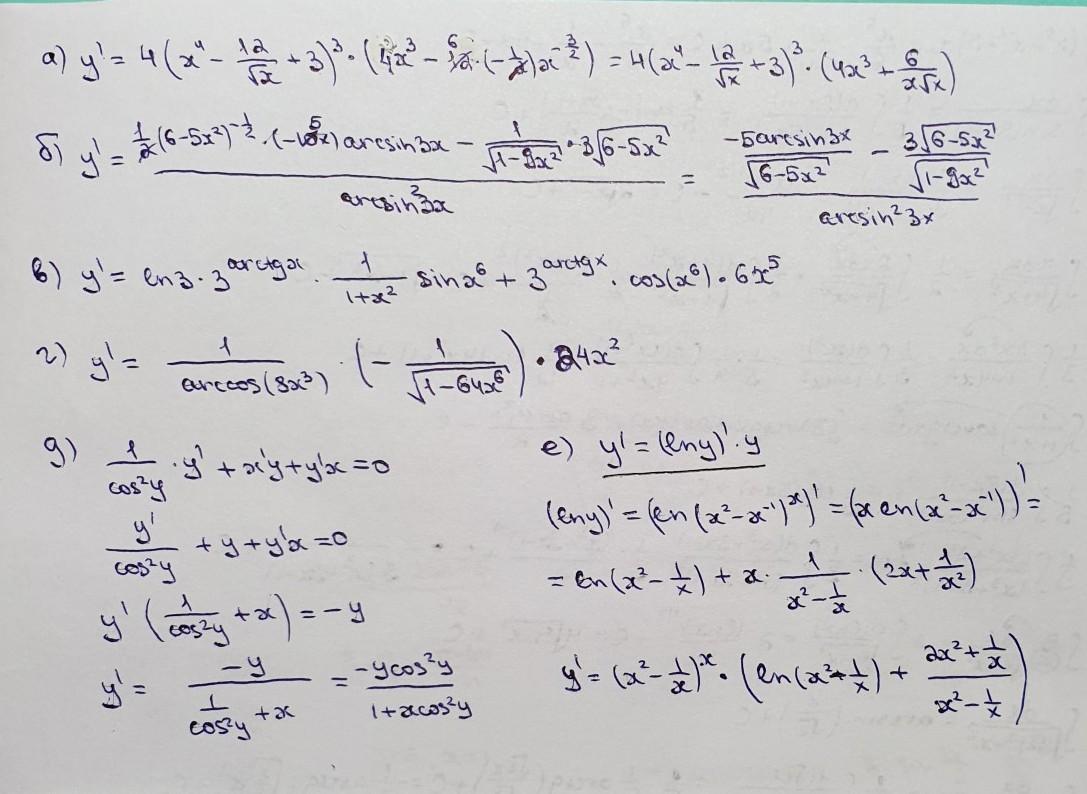 а) y' = 4(x⁴ - 12/√x + 3)³ · (4x³ - 12⁶ · (-1/2)x^(-3/2)) = 4(x⁴ - 12/√x + 3)³ · (4x³ + 6/(x√x))
б) y' = (1/2(6-5x²)^(-1/2) · (-10x) arcsin3x - 1/√(1-9x²) · 3√(6-5x²)) / arcsin²3x = (-5arcsin3x/√(6-5x²) - 3√(6-5x²)/√(1-9x²)) / arcsin²3x
в) y' = ln3 · 3^(arctgx) · 1/(1+x²) sinx⁶ + 3^(arctgx) · cos(x⁶) · 6x⁵
г) y' = 1/arccos(8x³) · (- 1/√(1-64x⁶)) · 24x²
д) 1/cos²y · y' + x'y + y'x = 0
y'/cos²y + y + y'x = 0
y' (1/cos²y + x) = -y
y' = -y/(1/cos²y + x) = -ycos²y/(1+xcos²y)
е) y' = (lny)' · y
(lny)' = (ln(x²-x⁻¹)ˣ)' = (x ln(x²-x⁻¹))' =
= ln(x² - 1/x) + x · 1/(x² - 1/x) · (2x + 1/x²)
y' = (x² - 1/x)ˣ · (ln(x² - 1/x) + (2x² + 1/x)/(x² - 1/x))